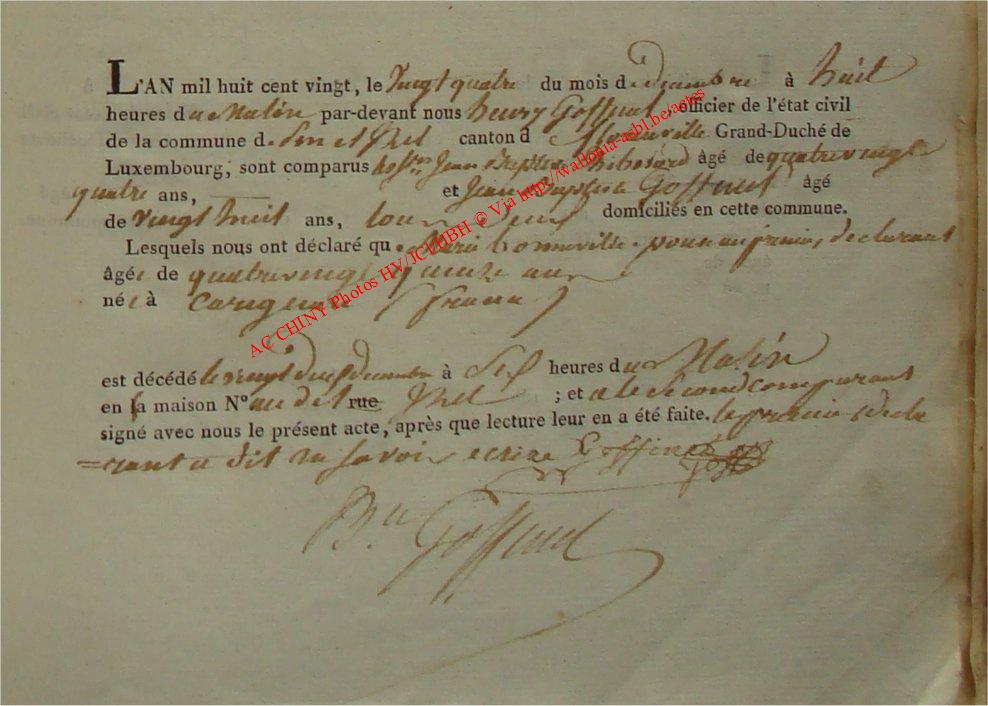 L'AN mil huit cent vingt, le vingt quatre du mois de decembre à huit
heures du Matin par-devant nous henry Goffinet, officier de l'état civil
de la commune d canton d florenville Grand-Duché de
Luxembourg, sont comparus Jean Baptiste âgé de quatre vingt
quatre ans, et Jean Baptiste Goffinet âgé
de vingt huit ans, tous deux domiciliés en cette commune.
Lesquels nous ont déclaré que bonneville. pour un premier declarant
âgée de quatre vingt quinze ans
née à (france)
est décédé le vingt deux decembre à Six heures du Matin
en sa maison N° au dit rue Izel ; et a le Second Comparant
signé avec nous le présent acte, après que lecture leur en a été faite. le premier decla
=rant a dit ne savoir ecrire Goffinet
B.te Goffinet
AC CHINY Photos HV/JCVHBH © Via http://wallonia-asbl.be/actes